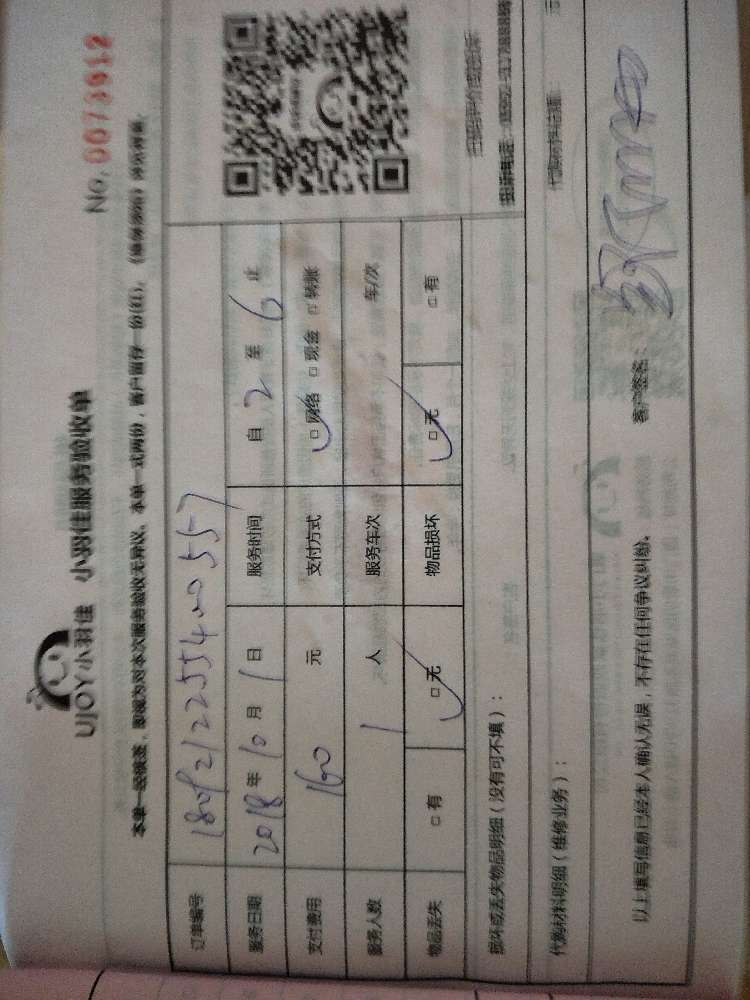 UJOY小羽佳 小羽佳服务验收单
No. 0073912
本单一经被签，即视为对本次服务验收无异议。本单一式两份，客户留存一份(红)，
订单编号 1809212255400557
服务日期 2018年10月1日 服务时间 自2至6止
支付费用 160元 支付方式 □网络 □现金 □转账
服务人数 1人 服务车次 车/次
物品丢失 □有 □无 物品损坏 □无 □有
损坏或丢失物品明细（没有可不填）：
代购材料明细（维修业务）：
以上填写信息已经本人确认无误，不存在任何争议纠纷。
客户签名：